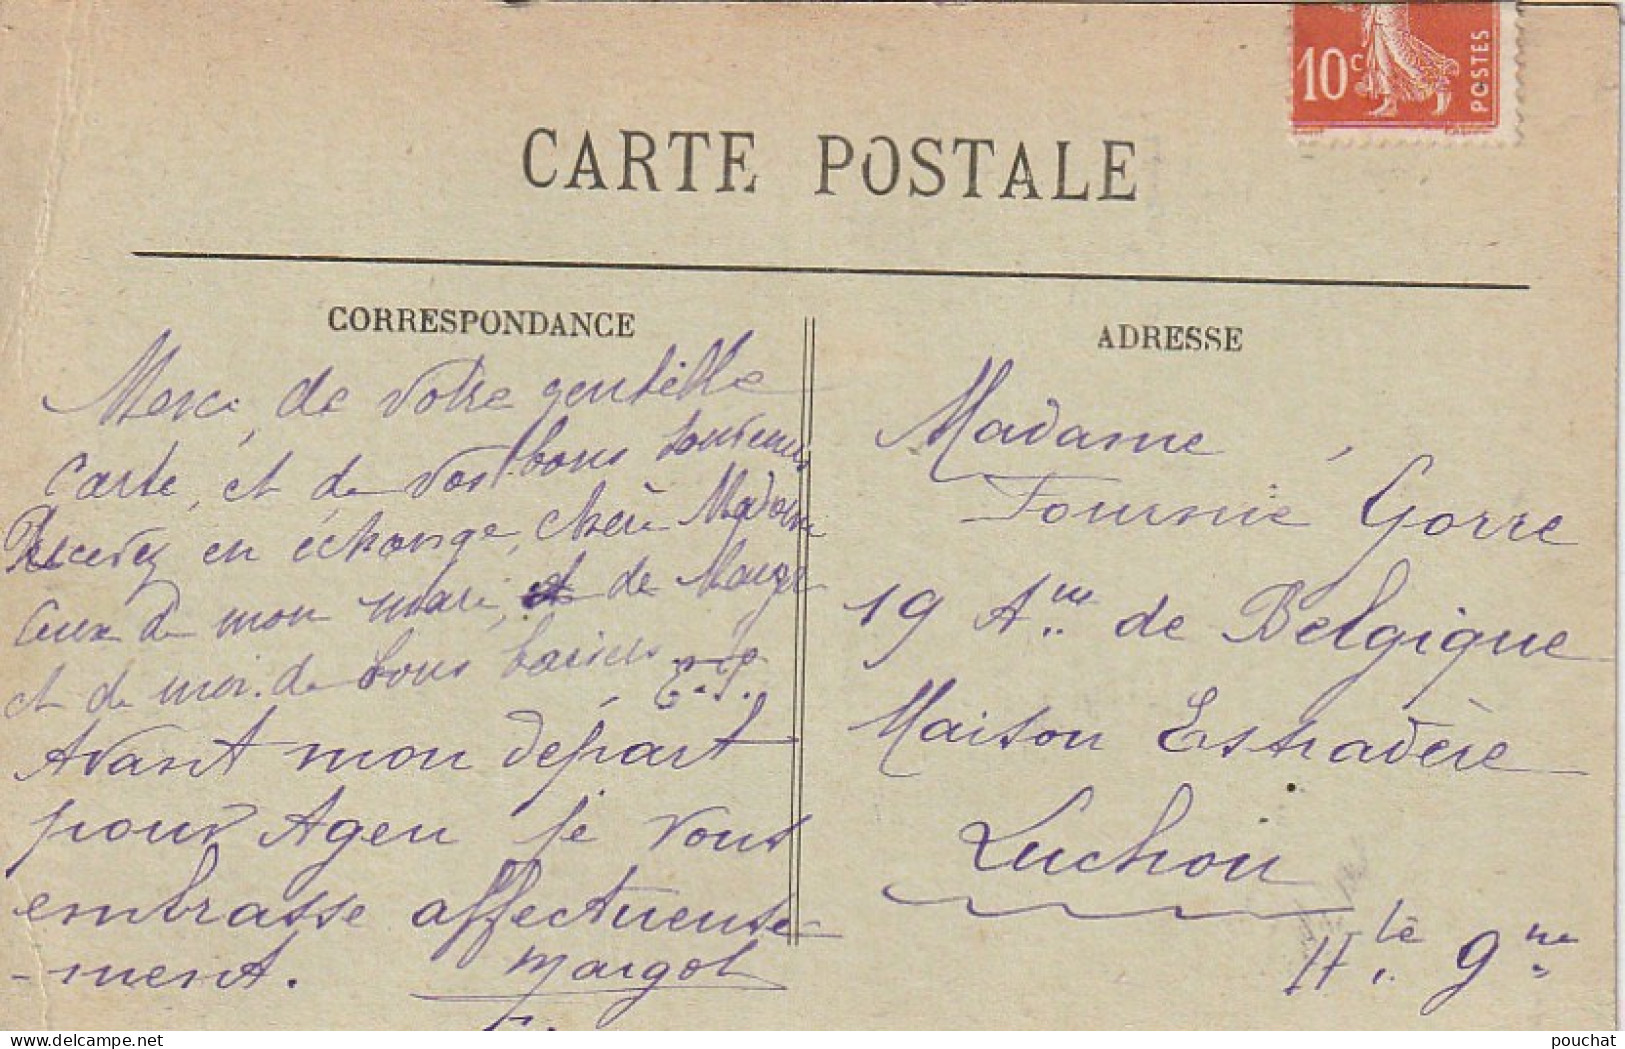 10c
POSTES
CARTE POSTALE
CORRESPONDANCE
Merci, de votre gentille
Carte, et de vos bons souvenirs
Recevez en échange, chère Madame
Ceux de mon mari, et de Margot
et de moi. de bons baisers
Avant mon départ
pour Agen je vous
embrasse affectueuse-
-ment. Margot
ADRESSE
Madame
Fournié Gorre
19 Anue de Belgique
Maison Estradère
Luchon
Hte Gne
delcampe.net
pouchat